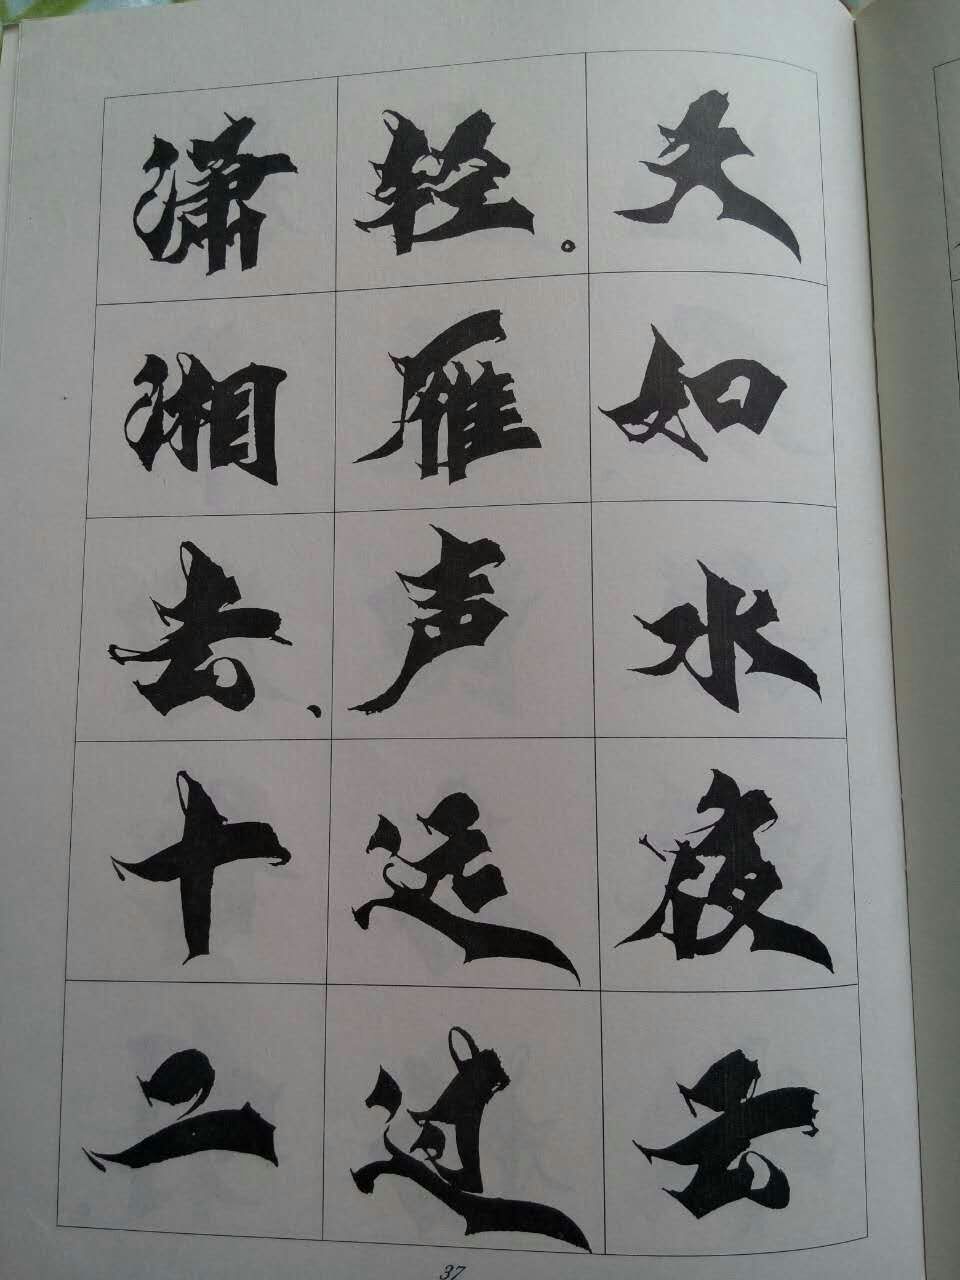 天如水夜云
轻。雁声远过
潇湘去、十二
37